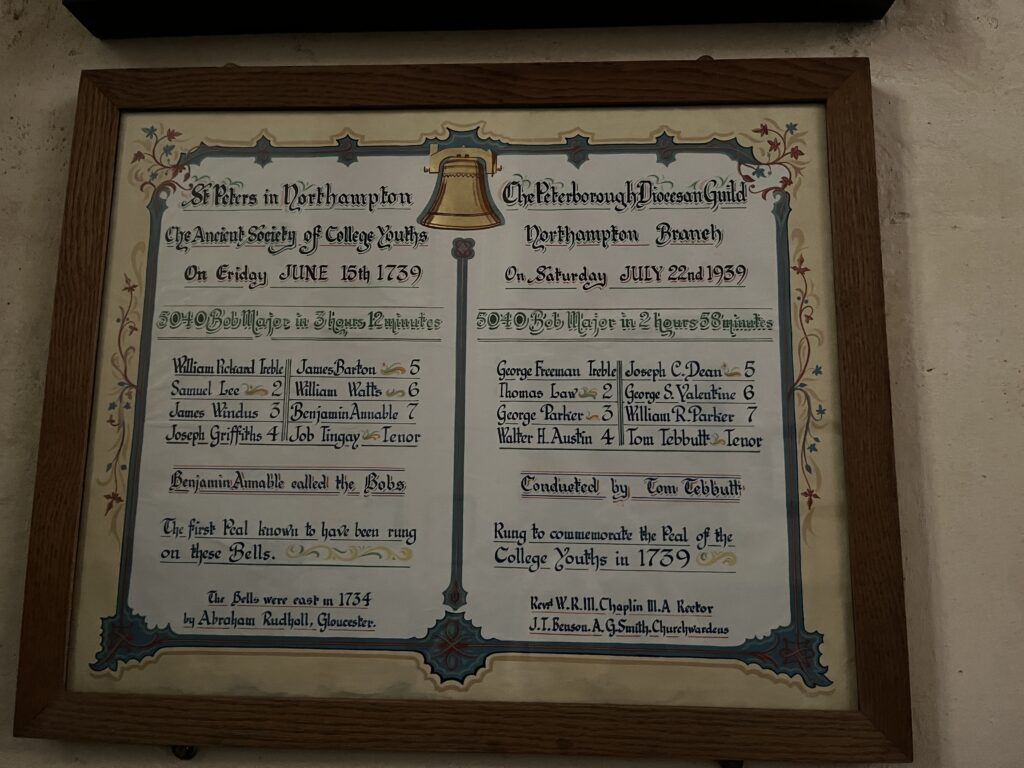 St Peters in Northampton
The Ancient Society of College Youths
On Friday JUNE 15th 1739
5040 Bob Major in 3 hours 12 minutes
William Pickard Treble James Barton 5
Samuel Lee 2 William Watts 6
James Windus 3 Benjamin Annable 7
Joseph Griffiths 4 Job Tingay Tenor
Benjamin Annable called the Bobs
The first Peal known to have been rung
on these Bells.
The Bells were cast in 1734
by Abraham Rudhall, Gloucester.
The Peterborough Diocesan Guild
Northampton Branch
On Saturday JULY 22nd 1939
5040 Bob Major in 2 hours 58 minutes
George Freeman Treble Joseph C. Dean 5
Thomas Law 2 George S. Valentine 6
George Parker 3 William R. Parker 7
Walter H. Austin 4 Tom Tebbutt Tenor
Conducted by Tom Tebbutt
Rung to commemorate the Peal of the
College Youths in 1739
Revd W.R.M. Chaplin M.A Rector
J.T. Benson. A.G. Smith. Churchwardens